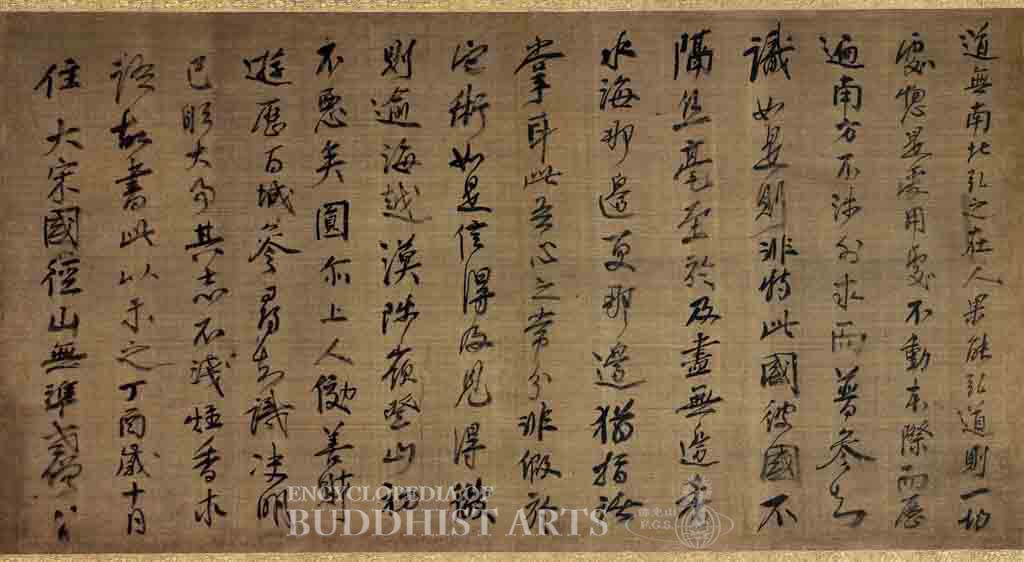 道無南北弘之在人果能弘道則一切
處惣是受用處不動本際而歷
遍南方不涉外求而普參知
識如是則非特此國彼國不
隔絲毫至於及盡無邊香
水海那邊更那邊猶指諸
掌耳此吾心之常分非假於
它術如是信得及見得徹
則逾海越漠陟嶺登山初
不惡矣圓尒上人效善財
遊歷百城參尋知識決明
己躬大事其志不淺炷香求
語故書此以示之丁酉歲十月
住大宋國徑山無準
ENCYCLOPEDIA OF
BUDDHIST ARTS
佛光山
F.G.S.